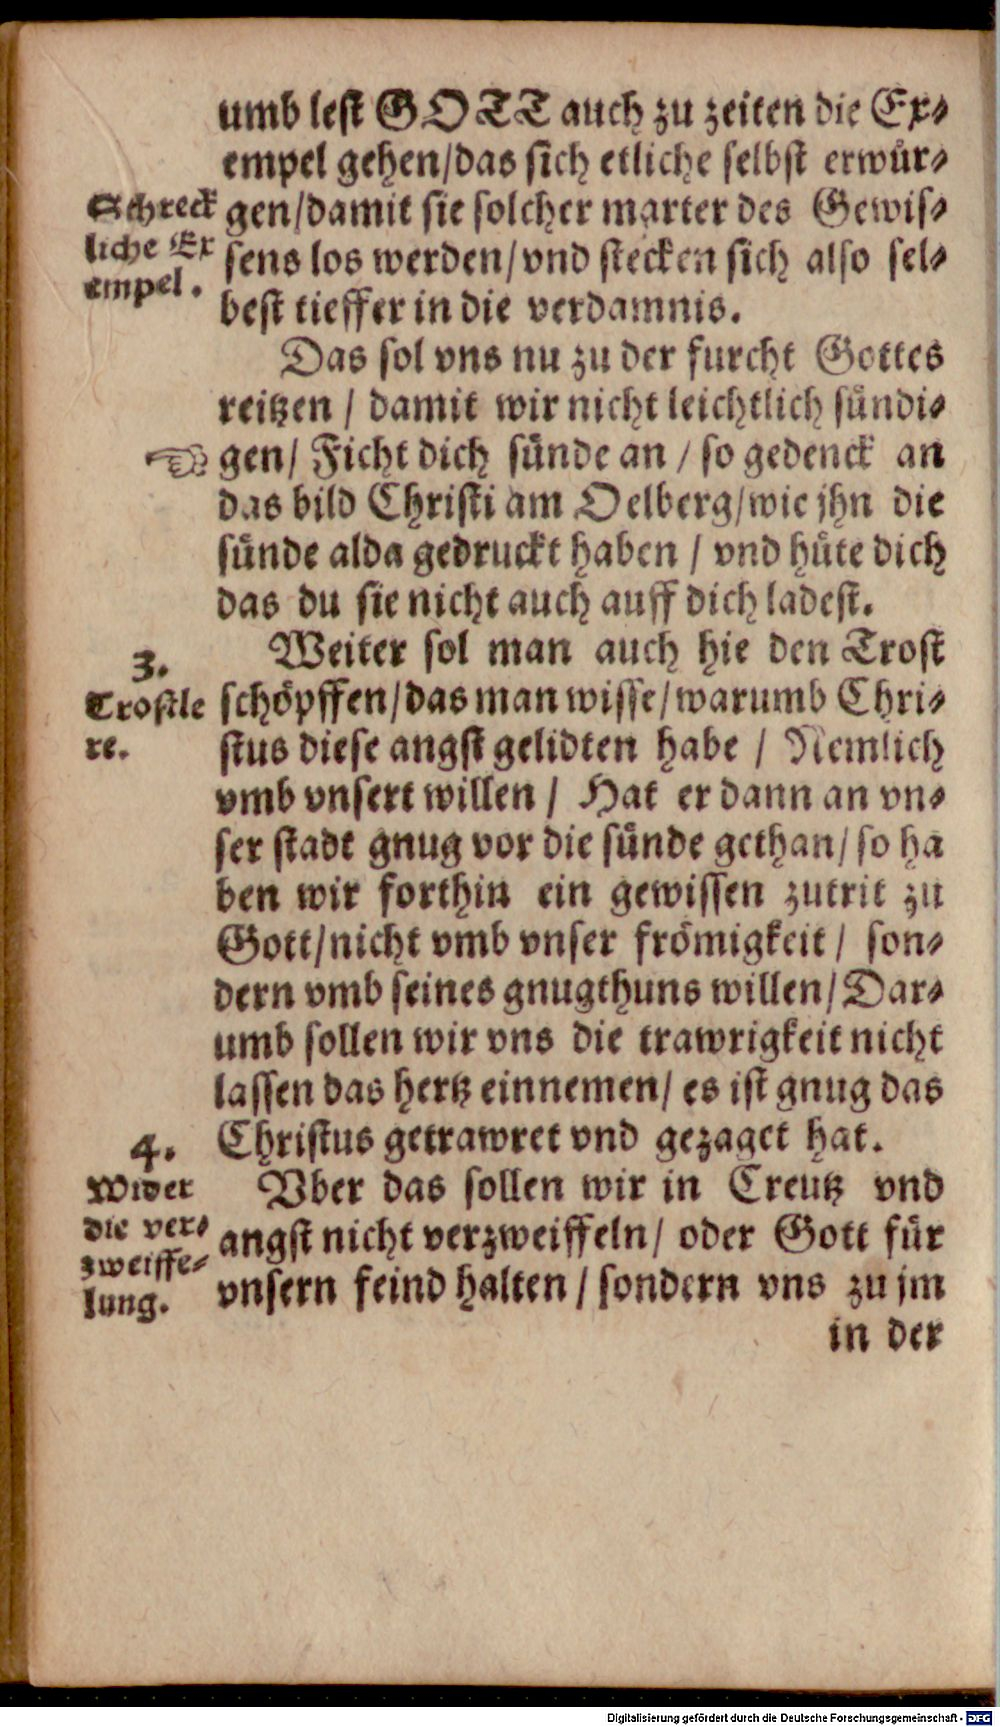 umb lest GOTT auch zu zeiten die Ex-
empel gehen/das sich etliche selbst erwür-
Schreck
liche Ex
empel.
gen/damit sie solcher marter des Gewis-
sens los werden/vnd stecken sich also sel-
best tieffer in die verdamnis.
Das sol vns nu zu der furcht Gottes
reitzen / damit wir nicht leichtlich sündi-
☜ gen/ Ficht dich sünde an / so gedenck an
das bild Christi am Oelberg/wie jhn die
sünde alda gedruckt haben / vnd hüte dich
das du sie nicht auch auff dich ladest.
3.
Trostle
re.
Weiter sol man auch hie den Trost
schöpffen/das man wisse/warumb Chri-
stus diese angst gelidten habe / Nemlich
vmb vnsert willen / Hat er dann an vn-
ser stadt gnug vor die sünde gethan/ so ha
ben wir forthin ein gewissen zutrit zu
Gott/nicht vmb vnser frömigkeit / son-
dern vmb seines gnugthuns willen/ Dar-
umb sollen wir vns die trawrigkeit nicht
lassen das hertz einnemen/ es ist gnug das
Christus getrawret vnd gezaget hat.
4.
Wider
die ver-
zweiffe-
lung.
Vber das sollen wir in Creutz vnd
angst nicht verzweiffeln/ oder Gott für
vnsern feind halten / sondern vns zu jm
in der
Digitalisierung gefördert durch die Deutsche Forschungsgemeinschaft - DFG